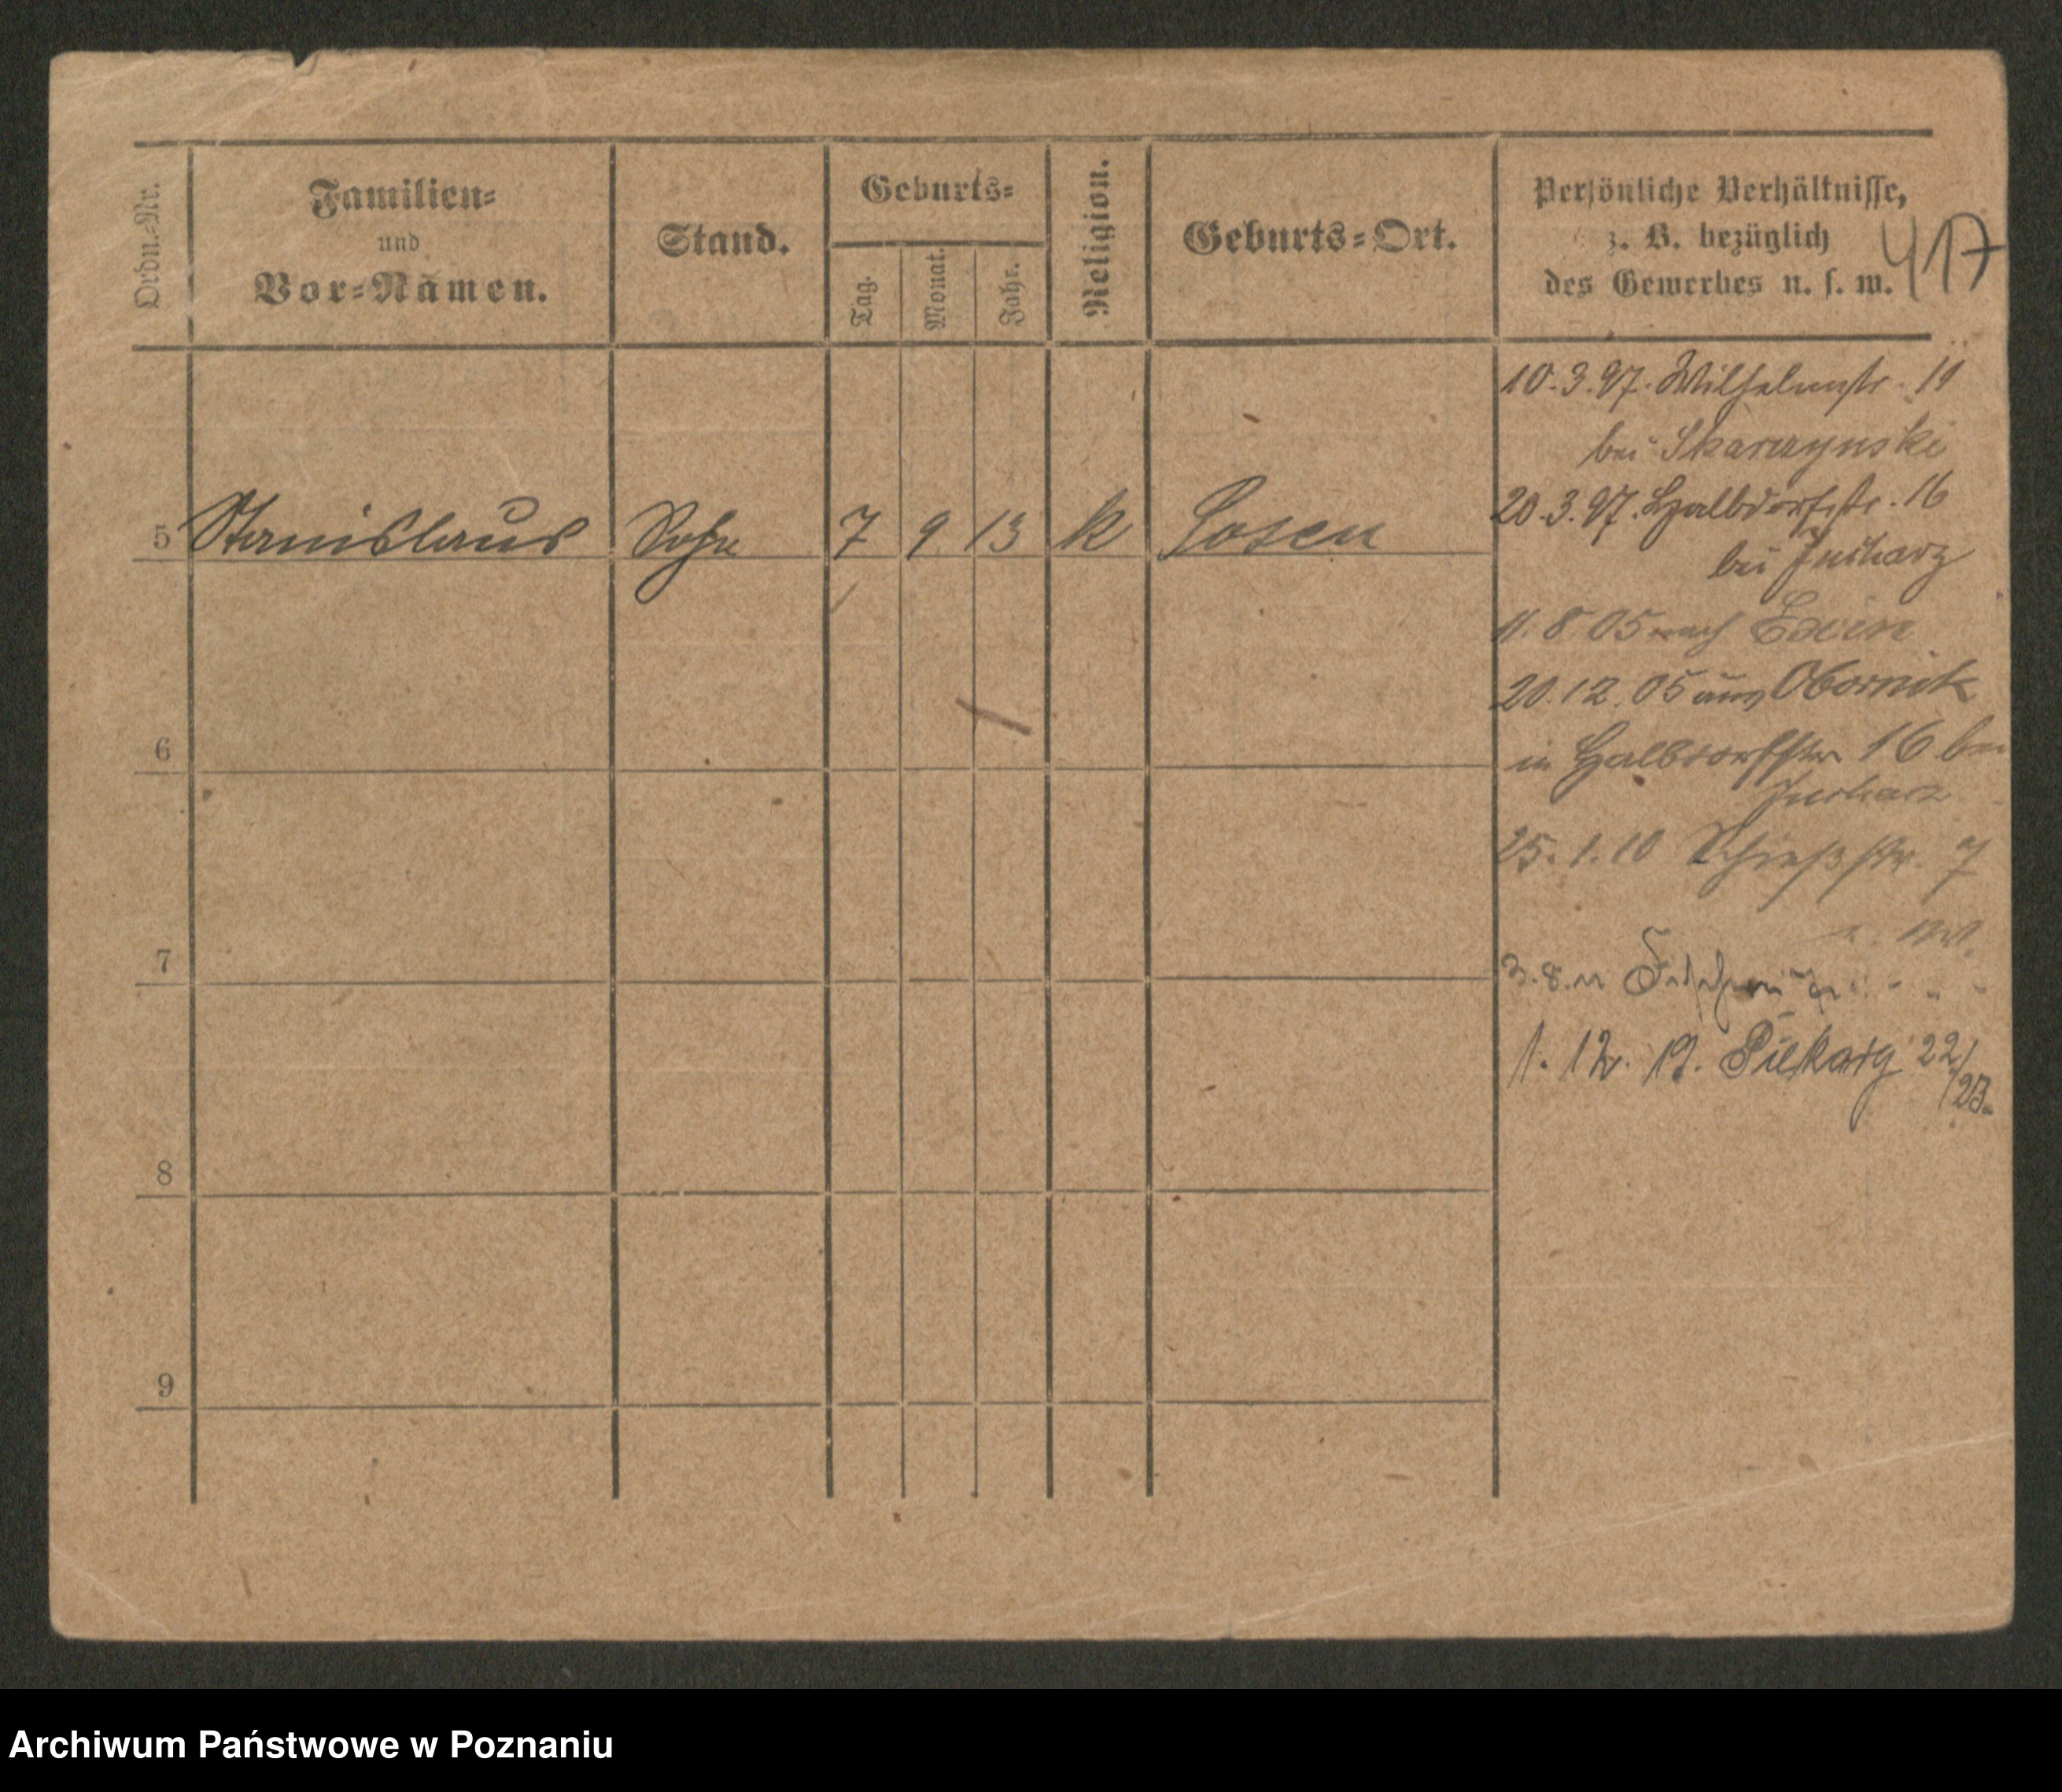 Ordn.-Nr.
Familien-
und
Vor-Namen.
Stand.
Geburts-
Tag.
Monat.
Jahr.
Religion.
Geburts-Ort.
Persönliche Verhältnisse,
z. B. bezüglich
des Gewerbes u. s. w.
417
10.3.97. Wilhelmstr. 11
bei Skarzynski
5 Stanislaus Sohn 7 9 13 k Posen
20.3.97. Halbdorfstr. 16
bei
11.8.05 nach Exin
20.12.05 aus Obornik
6
in Halbdorfstr 16 bei
25.1.10 Schießstr. 7
7
3.8.11
1. 12. 19. Piekary 22/23.
8
9
Archiwum Państwowe w Poznaniu